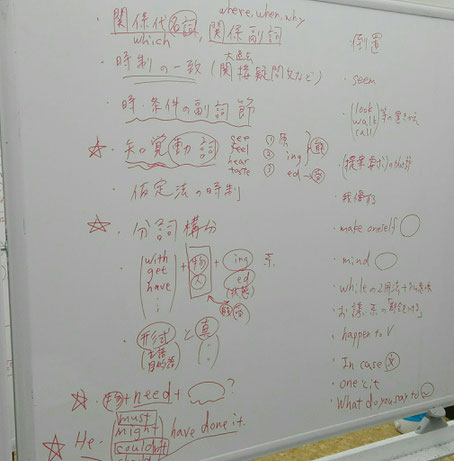 where, when, why
・関係代名詞, 関係副詞
which
大過去
・時制の一致(間接疑問文など)
・時・条件の副詞節
☆・知覚動詞 see feel hear taste
① 原
② ing 能
③ ed → 受
・仮定法の時制
☆・分詞構分
with get have + 物 人 + ing ed 系
(状態)
能 受
・形式と真
主語
目的語
☆・物+need+ ?
☆ He must might couldn't have done it.
倒置
・seem
・(look walk call)
・make oneself ○
・mind ○
・while の2用法+
・happen to V
・In case
・one と it
・What do you say to